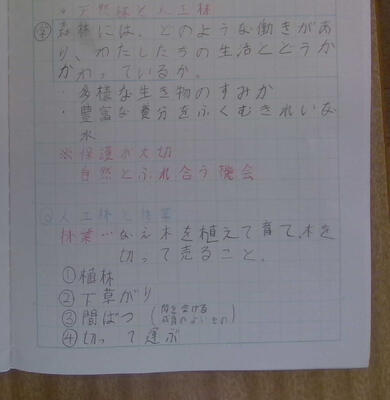 天然林と人工林
学 森林には、どのような働きがあ
り、わたしたちの生活とどうか
かわっているか。
・多様な生き物のすみか
・豊富な養分をふくむきれいな
水
※保護が大切
自然とふれ合う機会
② 人工林と林業
林業…なえ木を植えて育て、木を
切って売ること。
①植林
②下草がり
③間ばつ (間を空ける
成長のよいもの)
④切って運ぶ